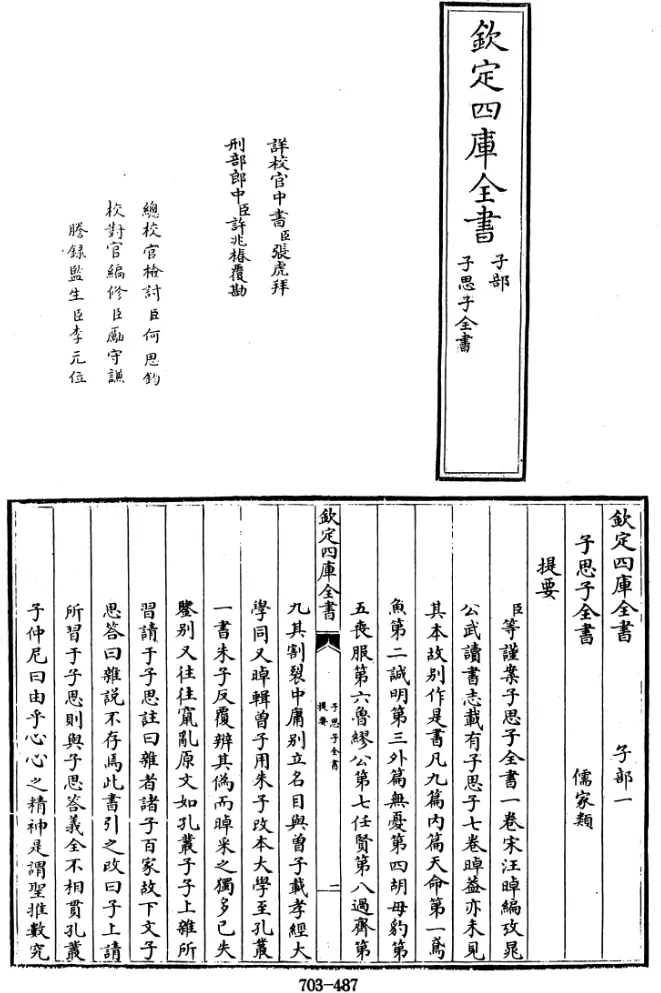 欽定四庫全書
子部
子思子全書
詳校官中書臣張虎拜
刑部郎中臣許兆椿覆勘
總校官檢討臣何思鈞
校對官編修臣勵守謙
謄錄監生臣李元位
欽定四庫全書
子部一
子思子全書
儒家類
提要
臣等謹案子思子全書一卷宋汪晫編攷晁
公武讀書志載有子思子七卷晫葢亦未見
其本故别作是書凡九篇内篇天命第一鳶
魚第二誠明第三外篇無憂第四胡母豹第
五喪服第六魯繆公第七任賢第八過齊第
欽定四庫全書
子思子全書
提要
二
九其割裂中庸别立名目與曾子載孝經大
學同又晫輯曾子用朱子改本大學至孔叢
一書朱子反覆辨其偽而晫采之獨多已失
鑒别又往往竄亂原文如孔叢子子上雜所
習請于子思註曰雜者諸子百家故下文子
思答曰雜說不存焉此書引之改曰子上請
所習于子思則與子思答義全不相貫孔叢
子仲尼曰由乎心心之精神是謂聖推數究
703-487